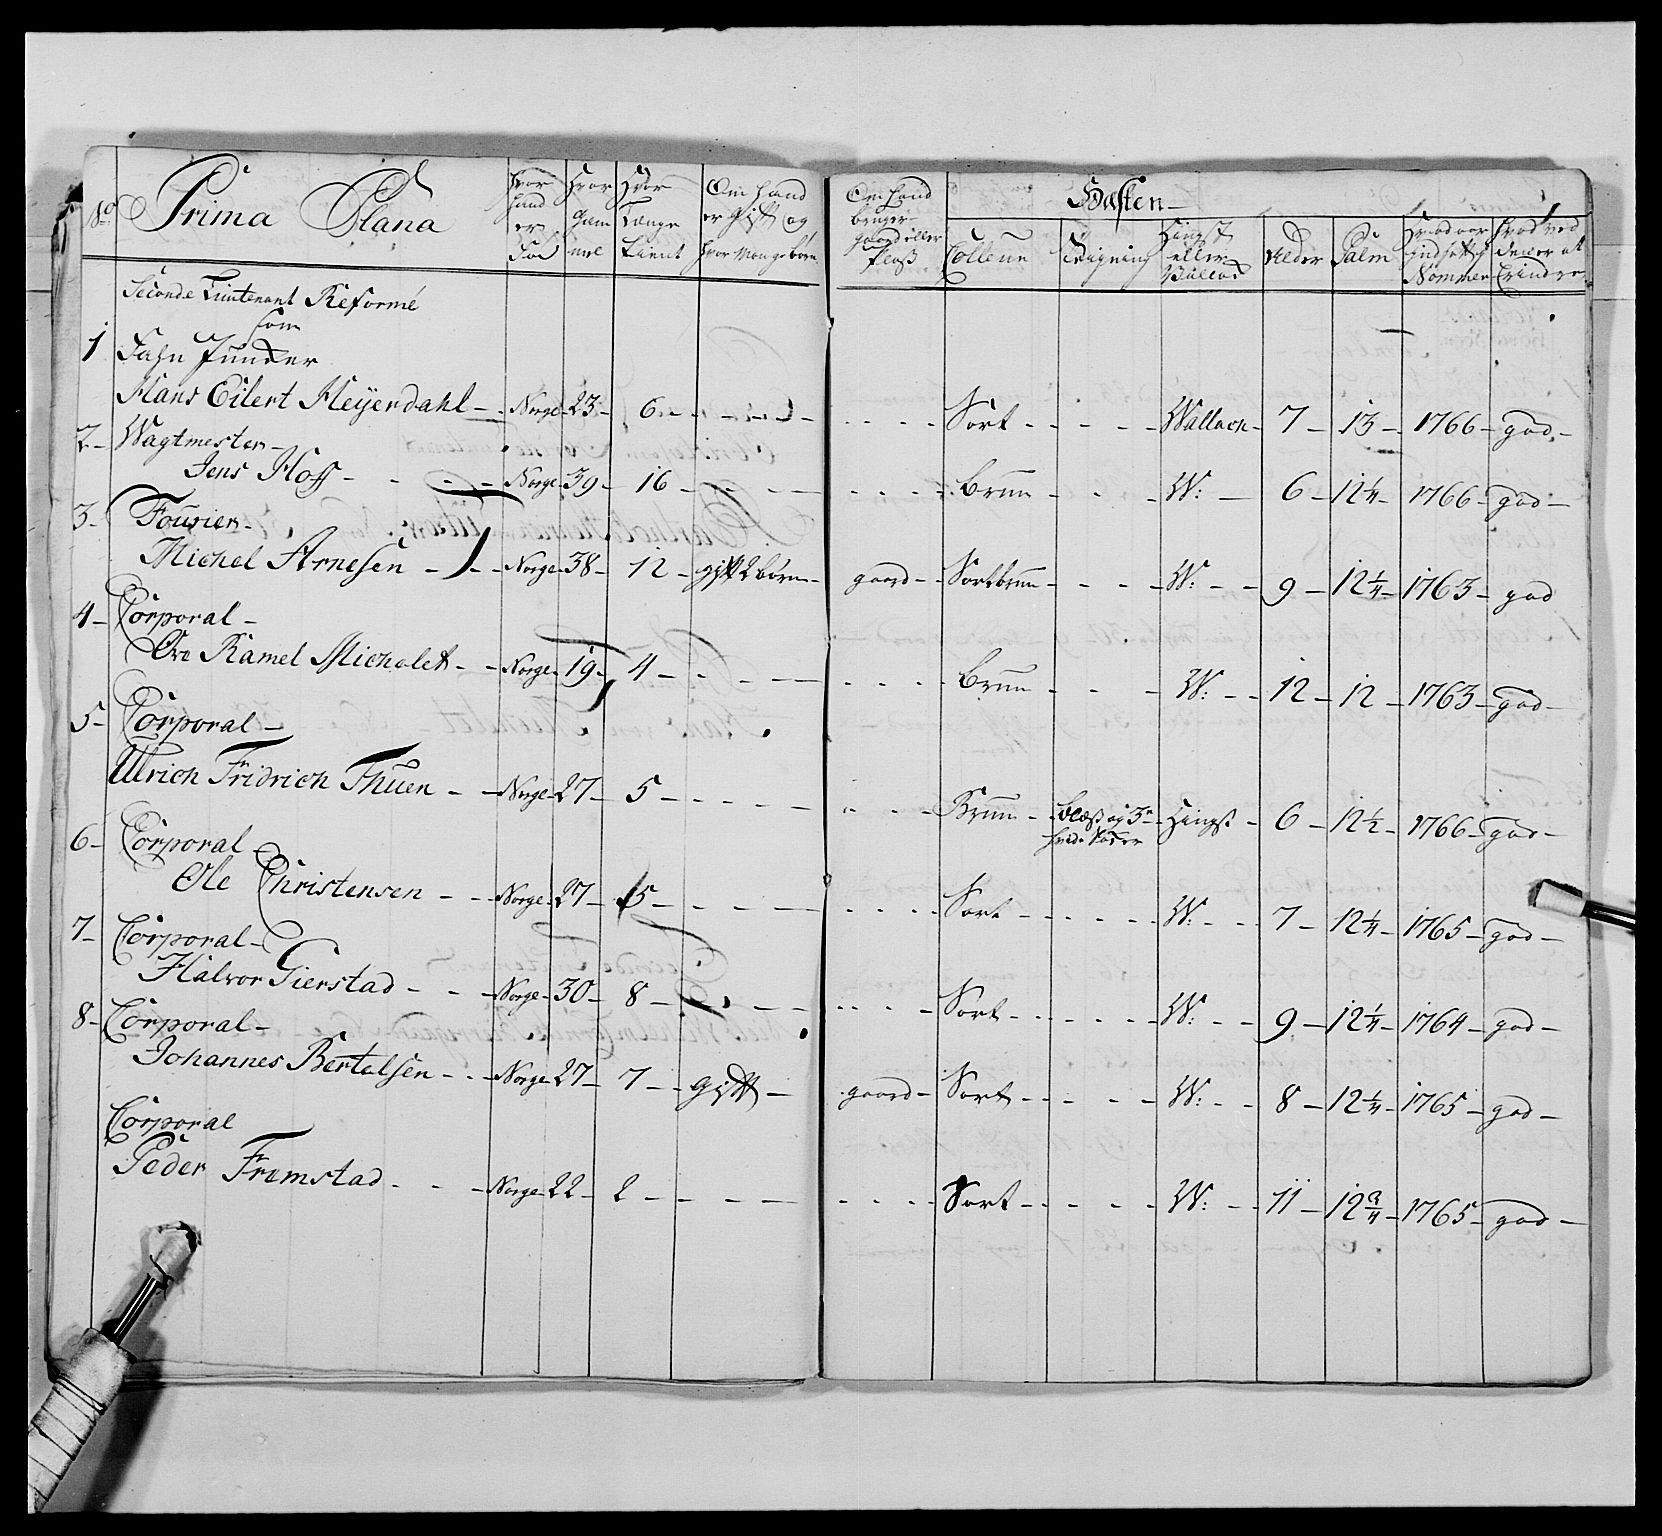 No Prima Plana
Hvor hand er Fød
Hvor Gam mel
Hvor Længe tient
Om hand er Gift og hvor Mange børn
Om hand bruger gaard eller Plads
Hæsten
Colleur
Teigning
Hingst eller Vallach
Alder
Palm
Hvad aar indsatt Nommer
Hvad ved den er at Erindre
Seconde Lieutenant Reformé
som
1 Fahn Juncker
Hans Eilert Heyerdahl - Norge - 23 - 6 - - - - - Sort - - - Wallach - 7 - 13 - 1766 - god -
2 - Wagtmester -
Jens Hoff - - - Norge - 39 - 16 - - - - - brun - - - W: - 6 - 12 1/4 - 1766 - god -
3 - Fourier -
Michel Arnesen - - Norge - 38 - 12 - gift 2 børn - gaard - Sortbrun - - - W: - - 9 - 12 1/4 - 1763 - god
4 - Corporal -
Ove Ramel Michelet - - Norge - 19 - 4 - - - - - brun - - - W: - - 12 - 12 - 1763 - god -
5 - Corporal -
Ulrich Fridrich Thuen - - Norge - 27 - 5 - - - - - Brun - blæs og 3 hvide Køder - Hingst - 6 - 12 1/2 - 1766 - god -
6 - Corporal -
Ole Christensen - - Norge - 27 - 5 - - - - - Sort - - - - W: - - 7 - 12 1/4 - 1765 - god -
7 - Corporal -
Halvor Gierstad - - Norge - 30 - 8 - - - - - Sort - - - - W: - - 9 - 12 1/4 - 1764 - god -
8 - Corporal -
Johannes Bertelsen - - Norge - 27 - 7 - - Gift - gaard - Sort - - - - W: - - 8 - 12 1/4 - 1765 - god -
Corporal
Peder Fremstad - - - Norge - 22 - 2 - - - - - Sort - - - - W: - - 11 - 12 3/4 - 1765 - god -